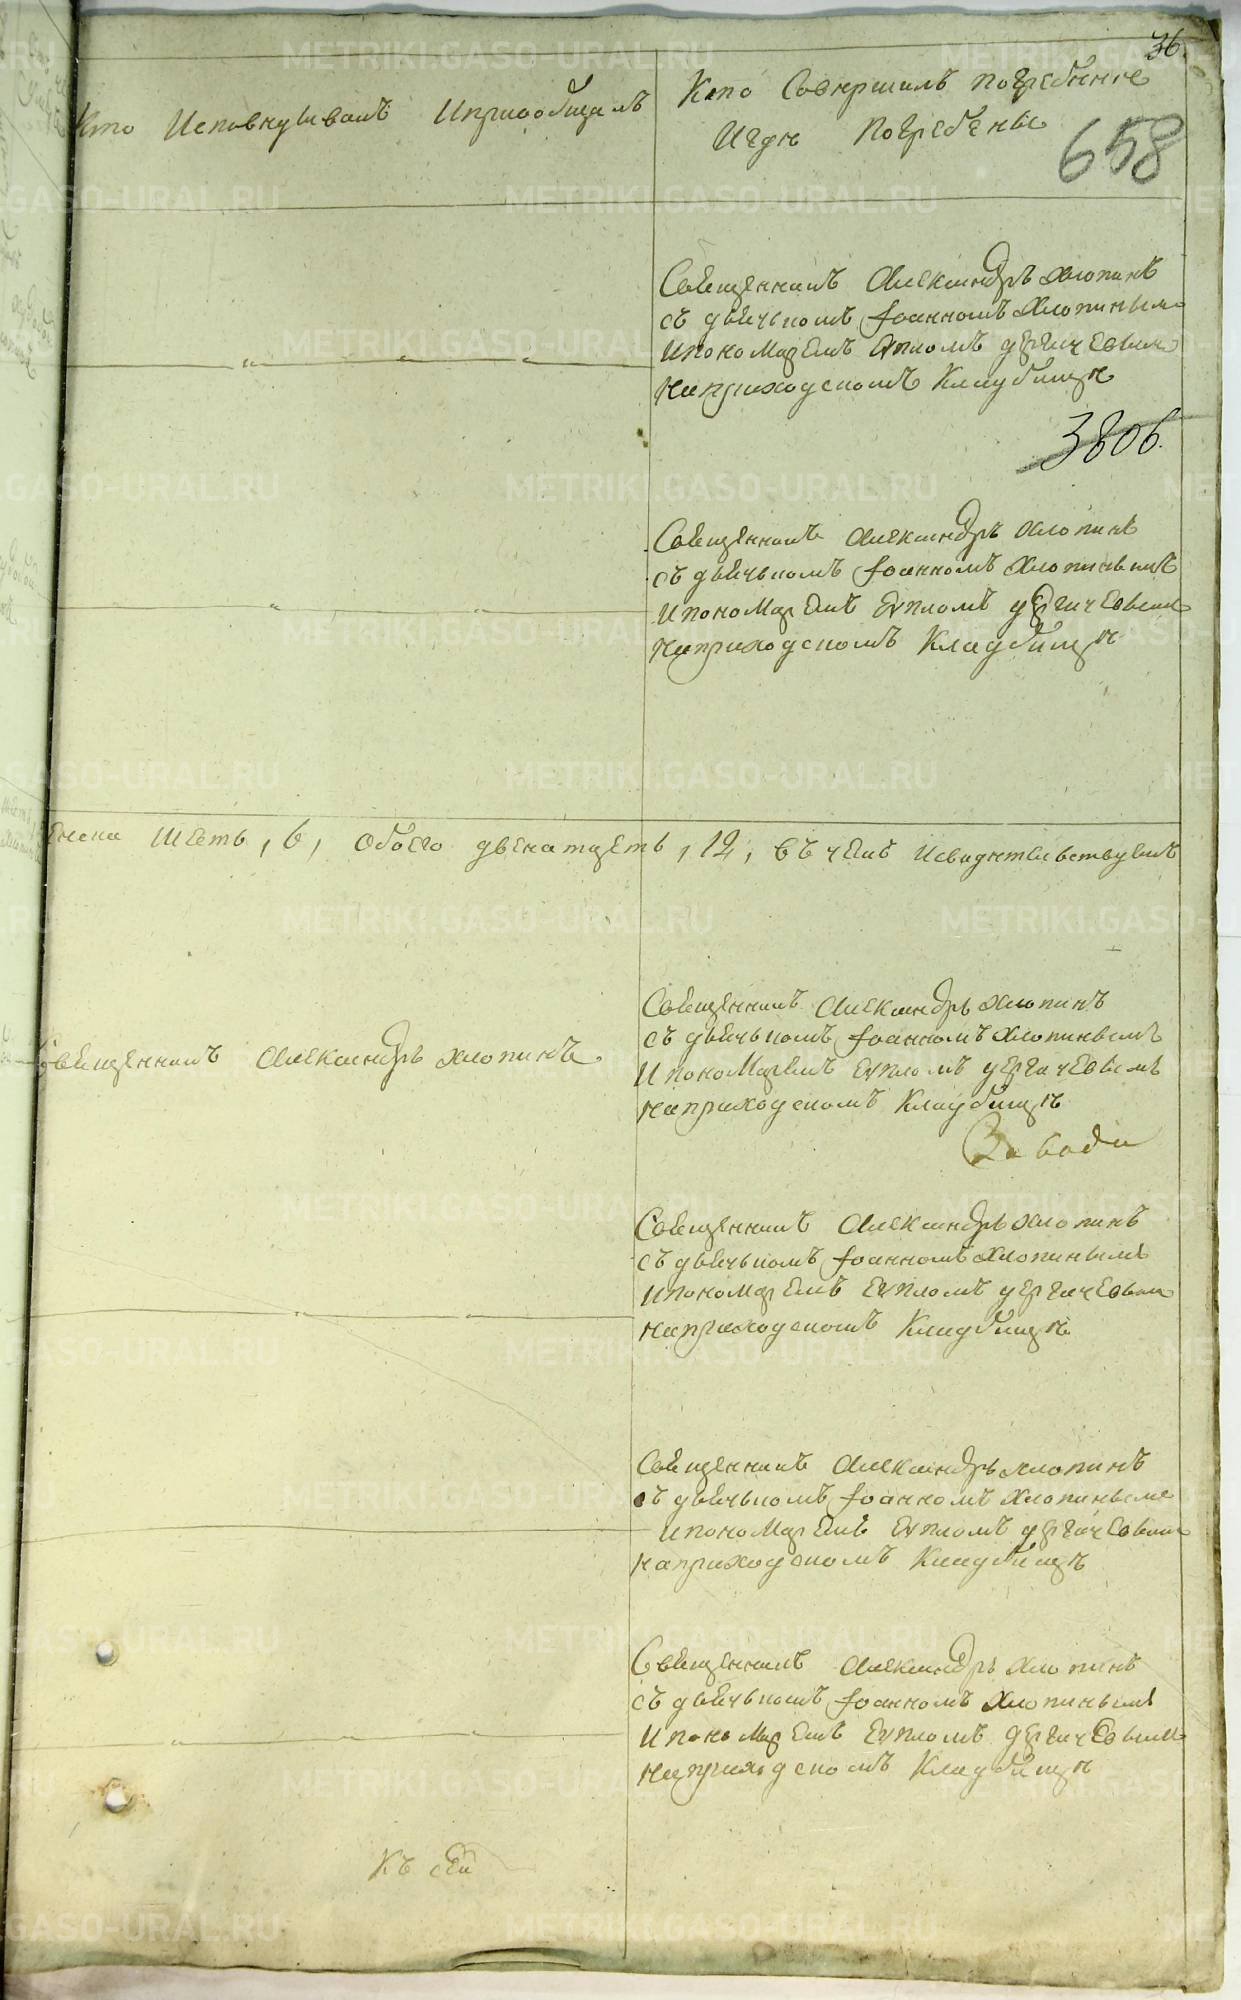 36.
Кто Исповѣдывалъ Ипрiобщалъ
Кто Совершилъ погребенiе
Игдѣ Погребены
658
Священникъ Александръ Хлопинъ
съ дьячькомъ Iоанномъ Хлопинымъ
Ипономаремъ Еѵпломъ Дергачевымъ
Наприходскомъ Кладбищѣ
3806.
Священникъ Александръ Хлопинъ
съ дьячькомъ Iоанномъ Хлопинымъ
Ипономаремъ Еѵпломъ Дергачевымъ
Наприходскомъ Кладбищѣ
шесть, 6, обоего двенатцеть, 12, въ чемъ Исвидѣтельствуемъ
Священникъ Александръ Хлопинъ
Священникъ Александръ Хлопинъ
съ дьячькомъ Iоанномъ Хлопинымъ
Ипономаремъ Еѵпломъ Дергачевымъ
Наприходскомъ Кладбищѣ
Священникъ Александръ Хлопинъ
съ дьячькомъ Iоанномъ Хлопинымъ
Ипономаремъ Еѵпломъ Дергачевымъ
Наприходскомъ Кладбищѣ
Священникъ Александръ Хлопинъ
съ дьячькомъ Iоанномъ Хлопинымъ
Ипономаремъ Еѵпломъ Дергачевымъ
Наприходскомъ Кладбищѣ
Священникъ Александръ Хлопинъ
съ дьячькомъ Iоанномъ Хлопинымъ
Ипономаремъ Еѵпломъ Дергачевымъ
Наприходскомъ Кладбищѣ
Къ сей
METRIKI.GASO-URAL.RU